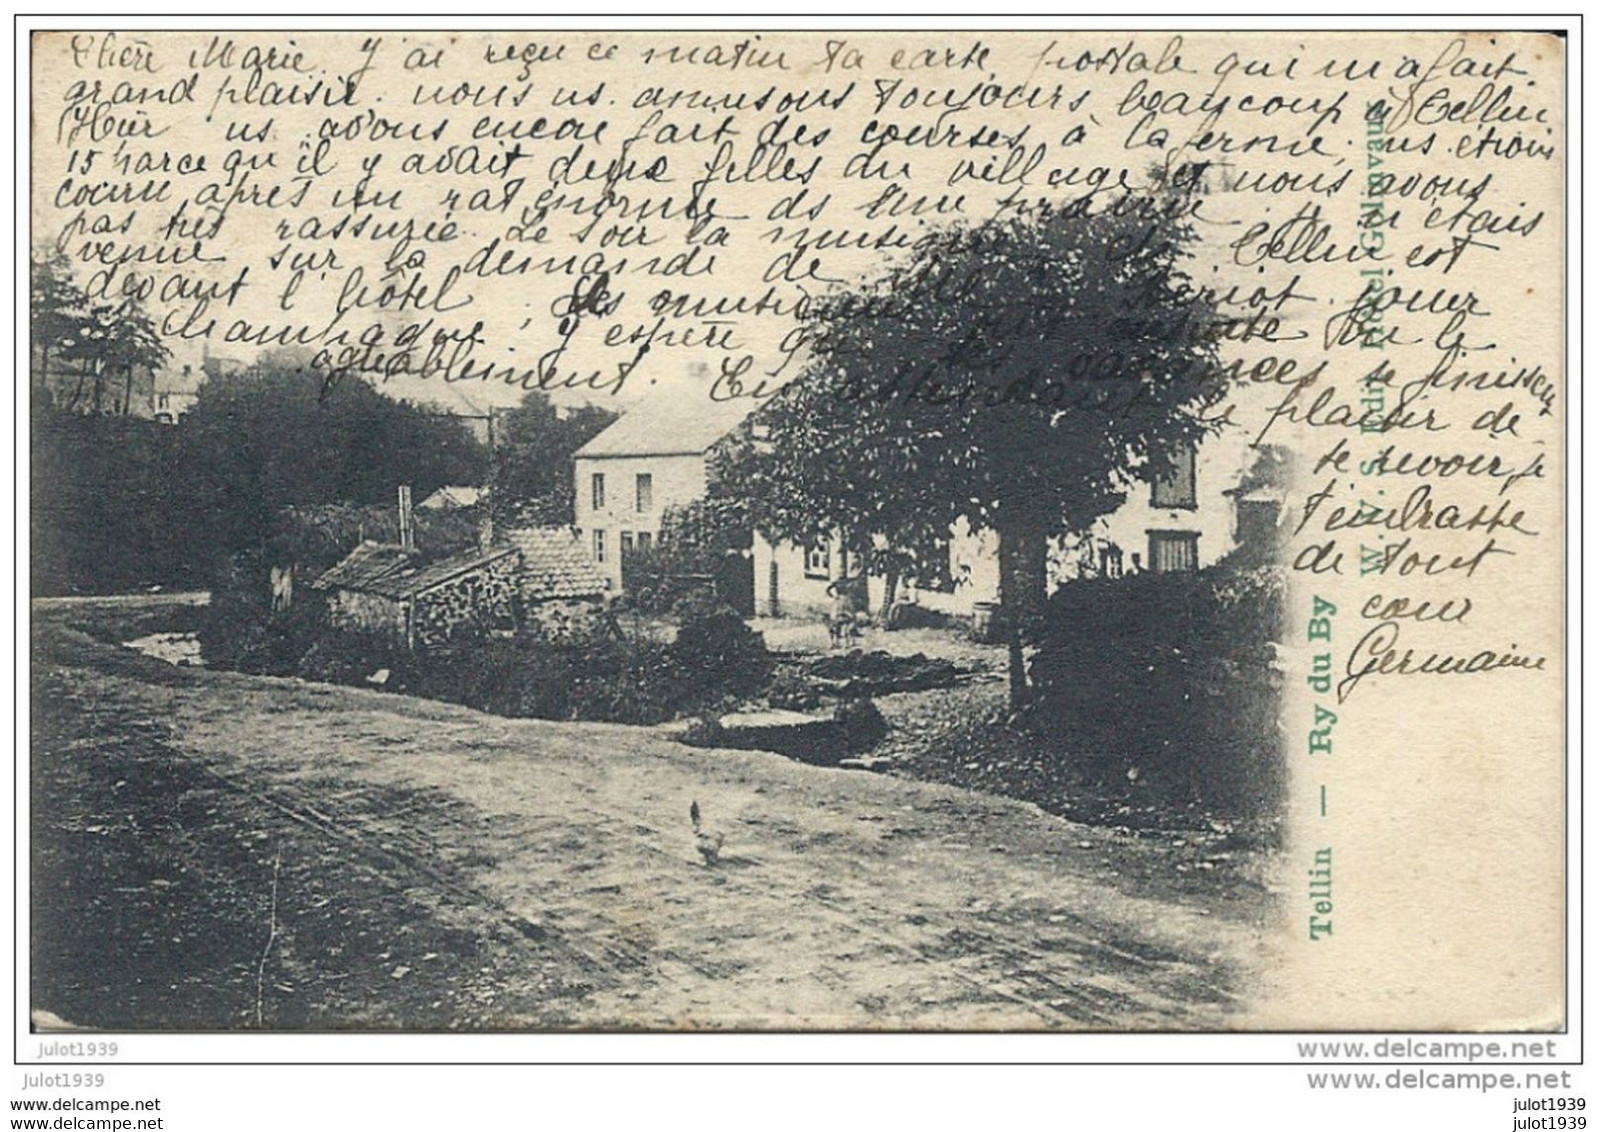 Chère Marie. J'ai reçu ce matin ta carte postale qui m'a fait
grand plaisir. nous ns. amusons toujours beaucoup à Tellin
Hier ns avons encore fait des courses à la ferme, ns étions
15 parce qu'il y avait deux filles du village et nous avons
couru après un rat énorme ds une prairie. Je n'étais
pas très rassurée. Le soir la musique de Tellin est
venue sur la demande de jouer
devant l'hôtel, les musiciens ont ensuite bu le
champagne. J'espère que tes vacances se finissent
agréablement. En attendant le plaisir de
te revoir, je
t'embrasse
de tout
cœur
Germaine
Tellin — Ry du By
W. V. S. Edit. Hôtel Golenvaux
julot1939
www.delcampe.net
julot1939
www.delcampe.net
www.delcampe.com
julot1939
www.delcampe.com
julot1939